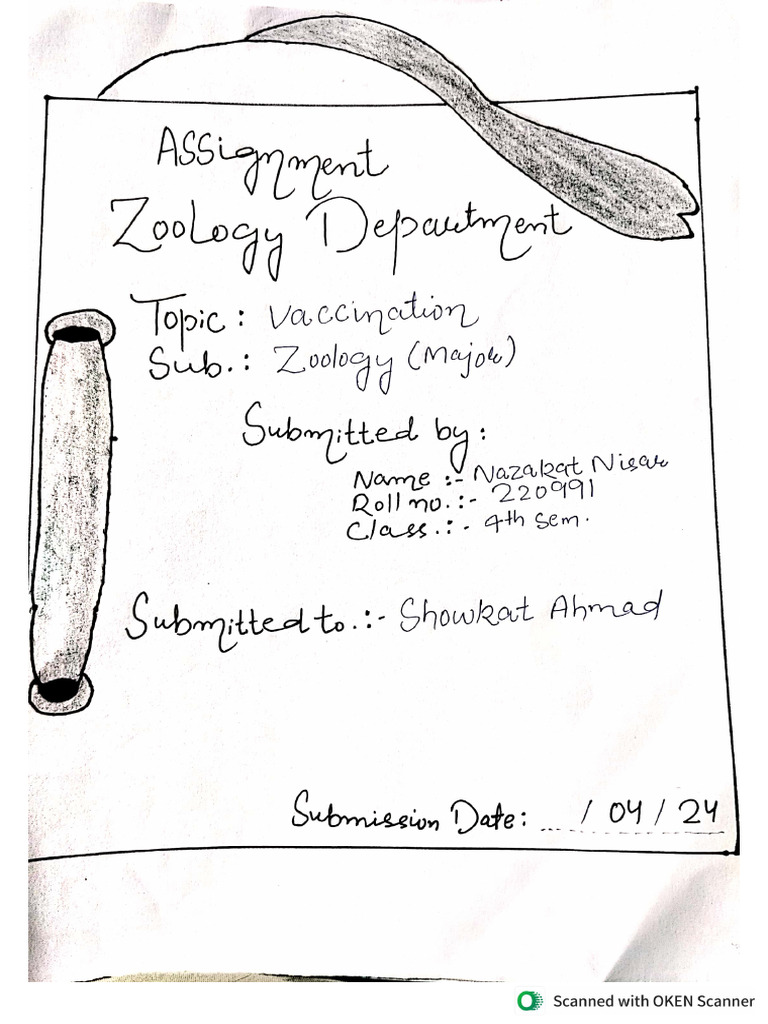 Assignment
Zoology Department
Topic : Vaccination
Sub. : Zoology (Major)
Submitted by :
Name :- Nazakat Nisar
Roll no. :- 220991
Class. :- 4th sem.
Submitted to. :- Showkat Ahmad
Submission Date: ... / 04 / 24
Scanned with OKEN Scanner